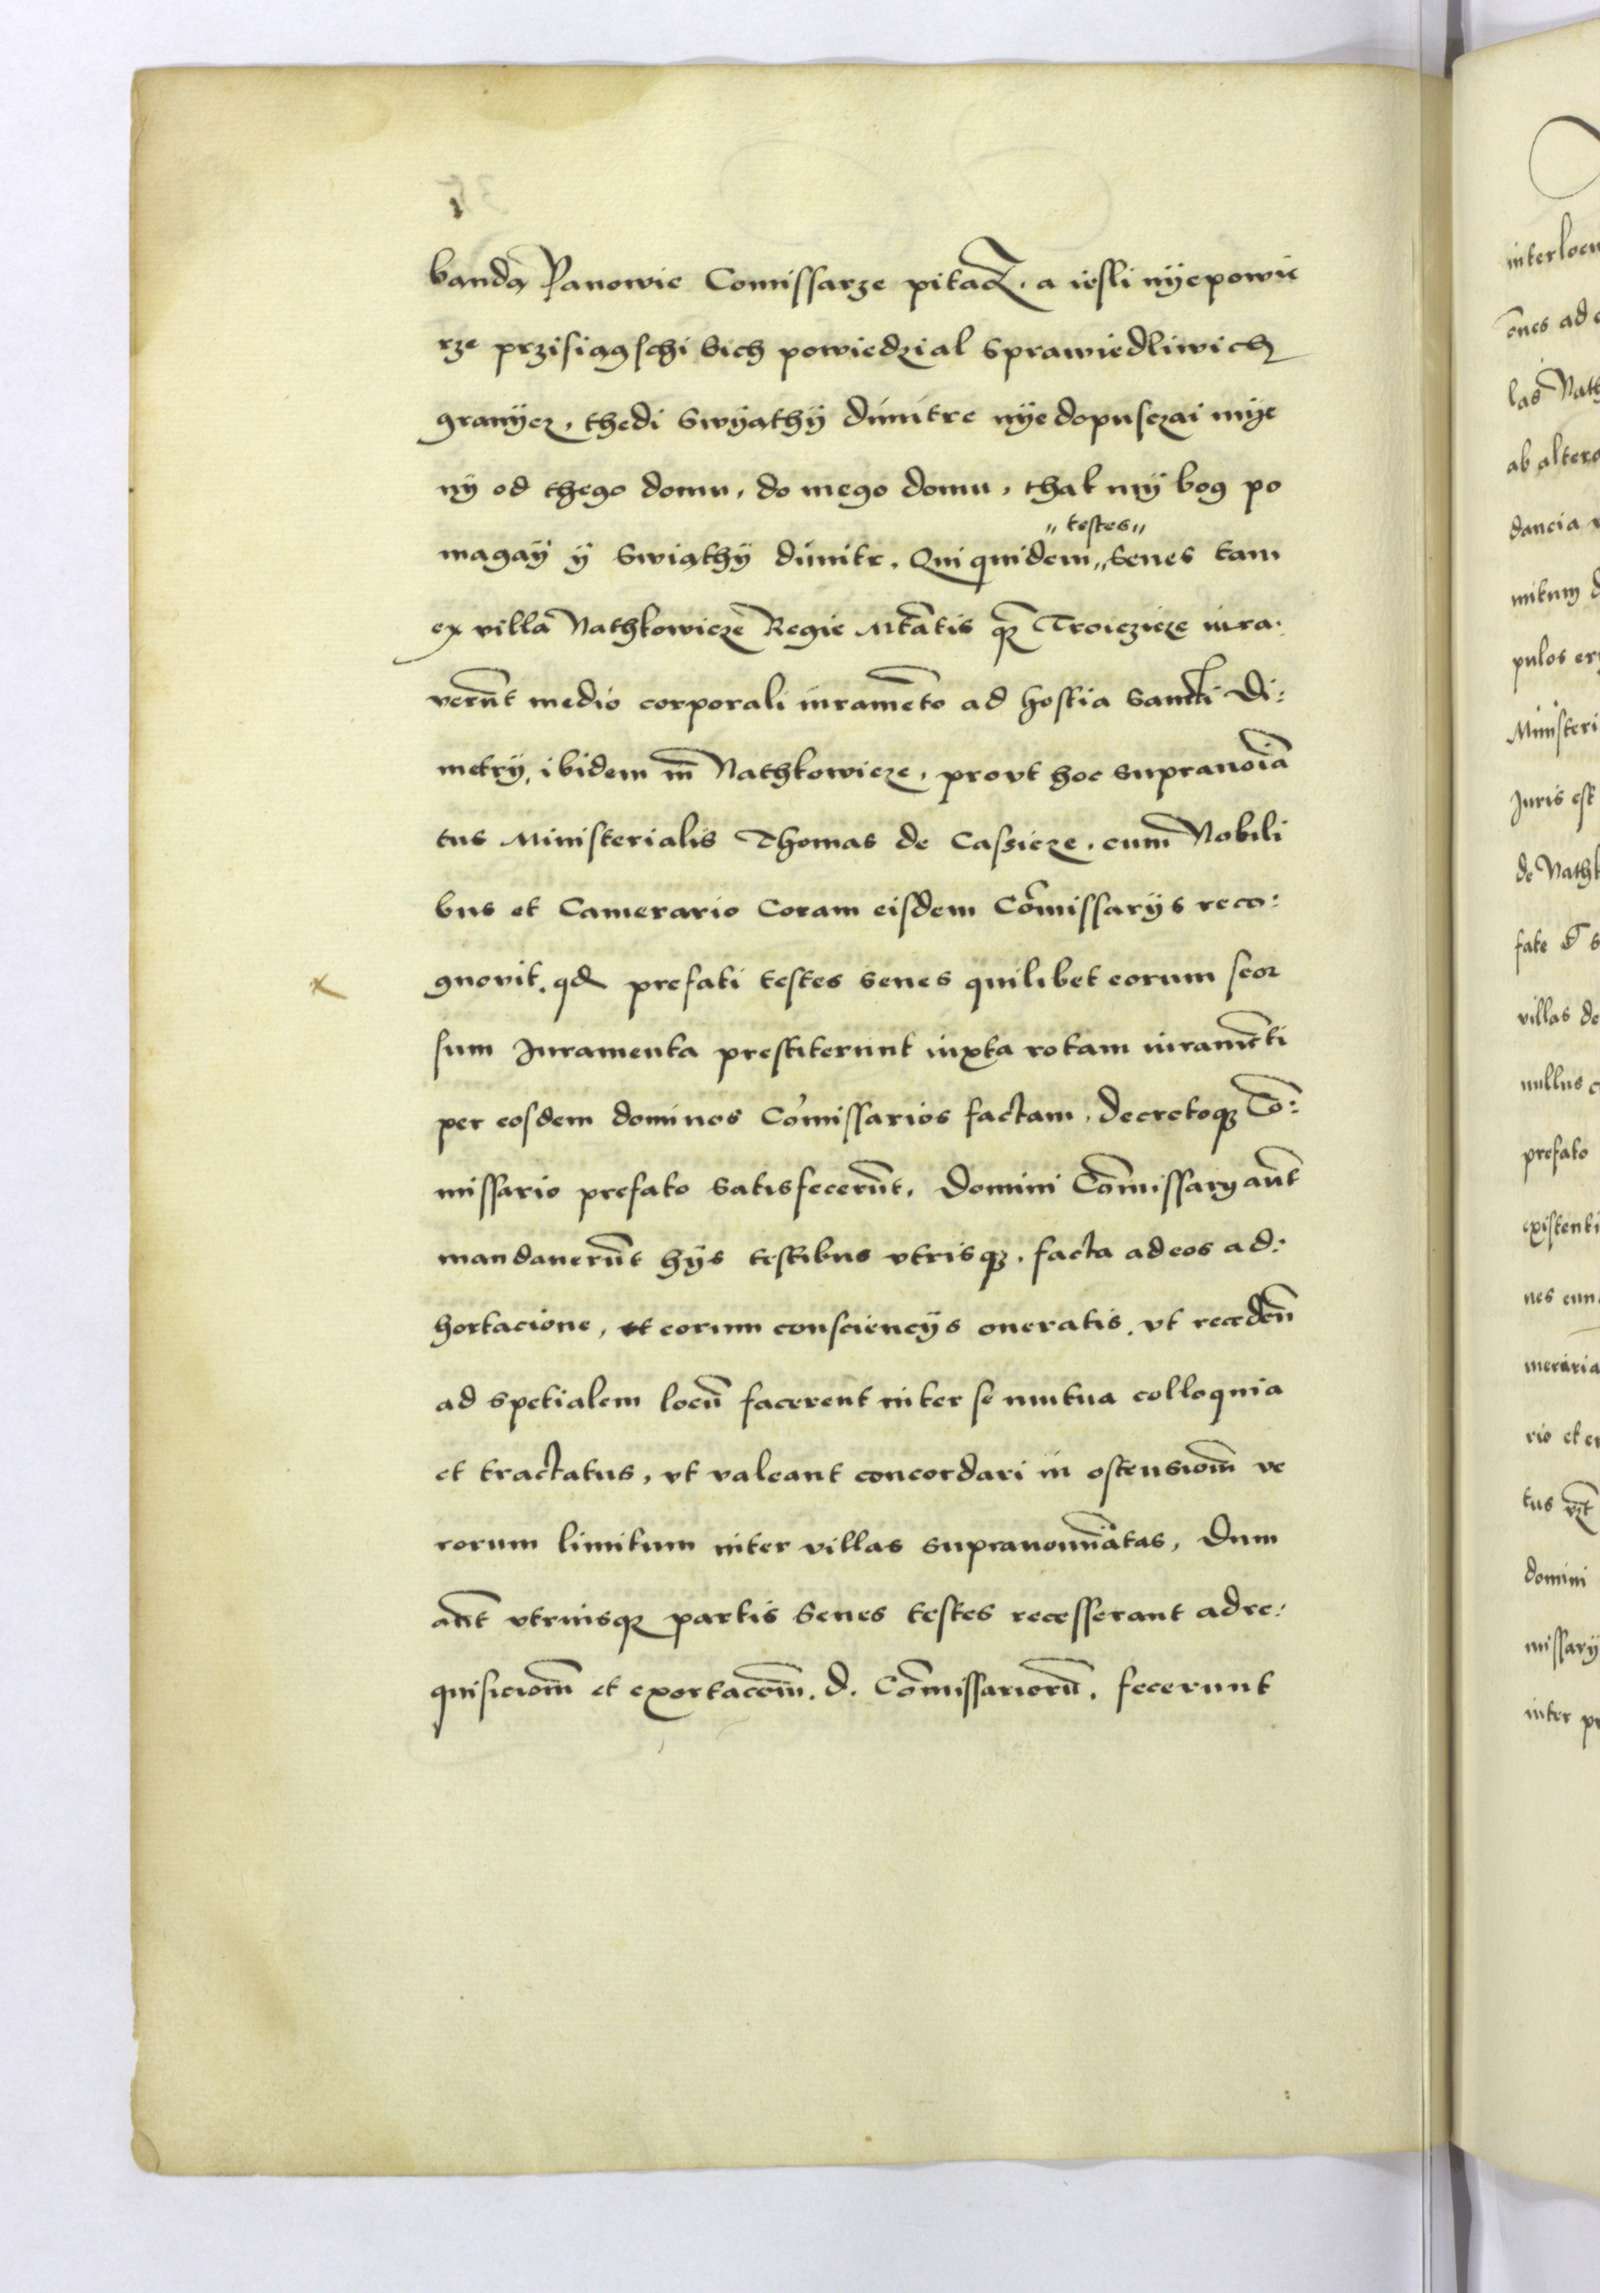 banda Panowie Comissarze pitacz, a iesli nÿepowie
rze przisiagschi bich powiedzial sprawiedliwich
granÿcz, thedi swÿathÿ dimitre nÿedopusczai mÿe
nÿ od thego domu, do mego domu, thak mÿ bog po
magaÿ ÿ swiathÿ dimitr. Qui quidem senes tam
" testes "
ex villa Nathkowicze Regie Mtatis qz Troiczicze iura:
verut medio corporali iurameto ad hostia sancti Di:
metrÿ, ibidem in Nathkowicze, provt hoc supranoia
tus Ministerialis Thomas de Cassicze, cum Nobili
bus et Camerario Coram eisdem Comissarÿs reco:
gnovit, qd prefati testes senes quilibet eorum seor
sum Iuramenta prestiterunt iuxta rotam iurameti
per eosdem dominos Comissarios factam, decretoqz Co:
missario prefato satisfecerut, Domini Comissarÿ aut
mandauerut hÿs testibus vtrisqz, facta ad eos ad:
hortacione, et eorum conscienciÿs oneratis, vt receden
ad spetialem locu facerent inter se mutua colloquia
et tractatus, vt valeant concordari in ostensiom ve
rorum limitum inter villas supranominatas, Dum
aut vtriusqz partis senes testes recesserant ad re:
quisiciom et exortacom. d. Comissarioru, fecerunt
interlocu
ones ad
las Nath
ab altera
dancia
mitum
pulos
Ministeri
Iuris est
de Nathk
fate
villas de
nullus
prefato
existenti
nes
rio et
tus
domini
missarÿ
inter